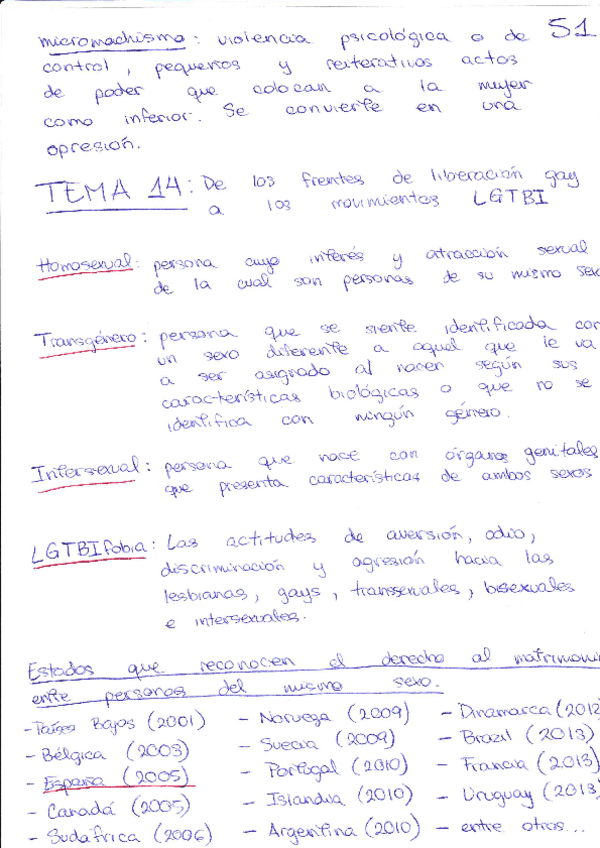 micromachismo: violencia psicológica o de 51
control, pequeños y reiterativos actos
de poder que colocan a la mujer
como inferior. Se convierte en una
opresión.
TEMA 14: De los frentes de liberación gay
a los movimientos LGTBI
Homosexual: persona cuyo interés y atracción sexual
de la cual son personas de su mismo sexo
Transgénero: persona que se siente identificada con
un sexo diferente a aquel que le va
a ser asignado al nacer según sus
características biológicas o que no se
identifica con ningún género.
Intersexual: persona que nace con órganos genitales
que presenta características de ambos sexos
LGTBIfobia: Las actitudes de aversión, odio,
discriminación y agresión hacia las
lesbianas, gays, transsexuales, bisexuales
e intersexuales.
Estados que reconocen el derecho al matrimoni
entre personas del mismo sexo.
- Países Bajos (2001) - Noruega (2009) - Dinamarca (2012
- Bélgica (2003) - Suecia (2009) - Brazil (2013)
- España (2005) - Portugal (2010) - Francia (2013)
- Canadá (2005) - Islandia (2010) - Uruguay (2013)
- Sudáfrica (2006) - Argentina (2010) - entre otros...